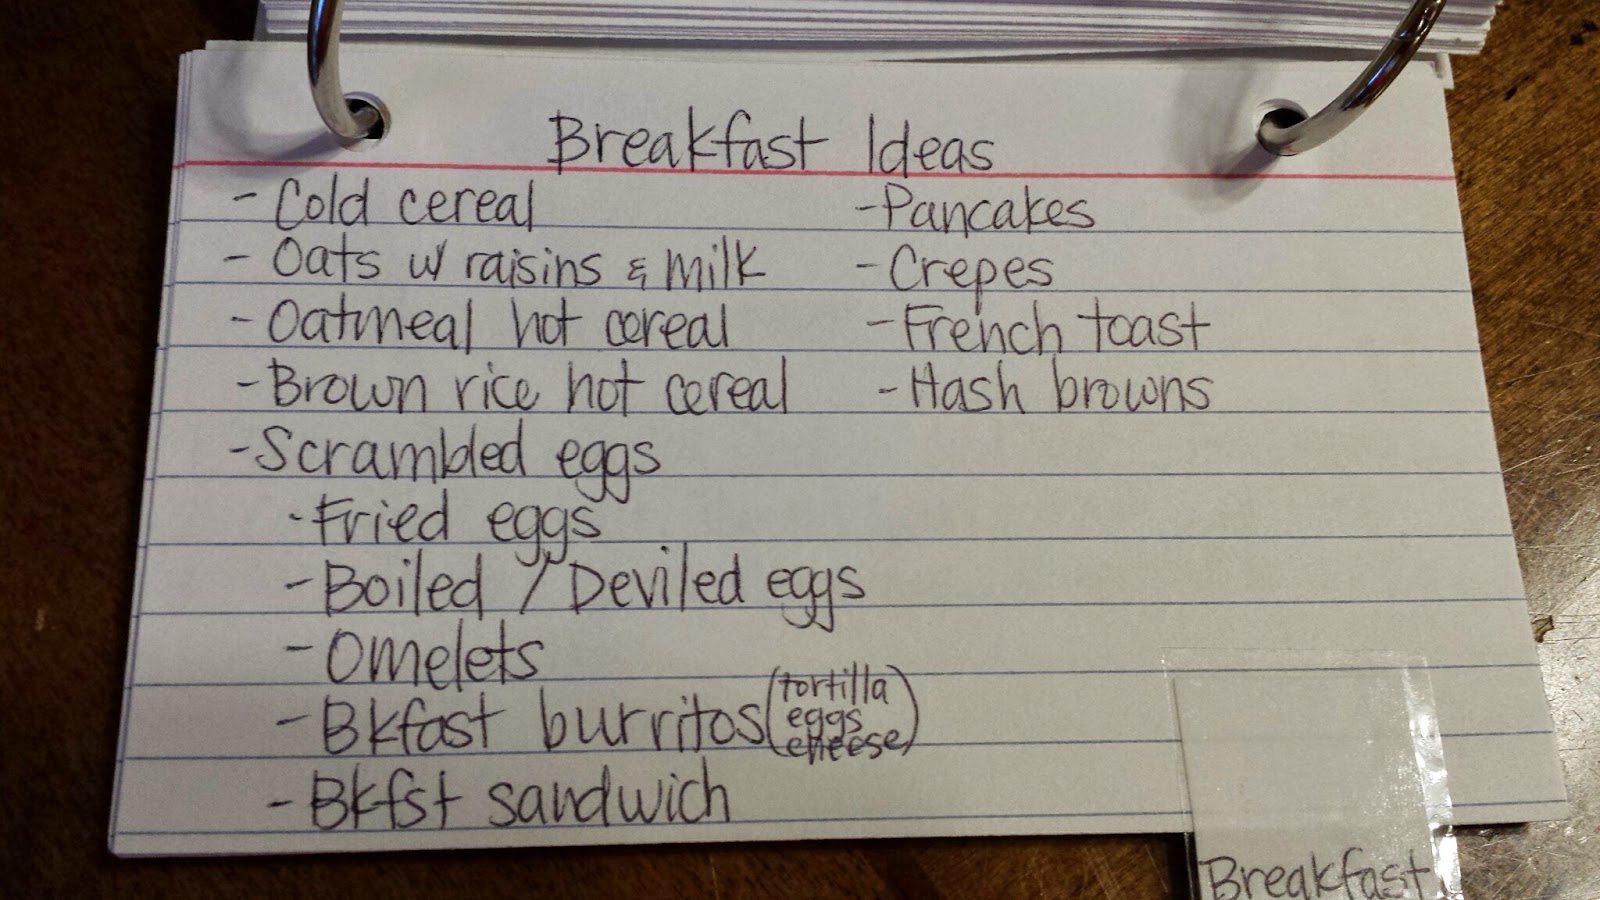 Breakfast Ideas
- Cold cereal
- Oats w/ raisins & milk
- Oatmeal hot cereal
- Brown rice hot cereal
- Scrambled eggs
- Fried eggs
- Boiled / Deviled eggs
- Omelets
- Bkfast burritos (tortilla
eggs
cheese)
- Bkfst sandwich
- Pancakes
- Crepes
- French toast
- Hash browns
Breakfast